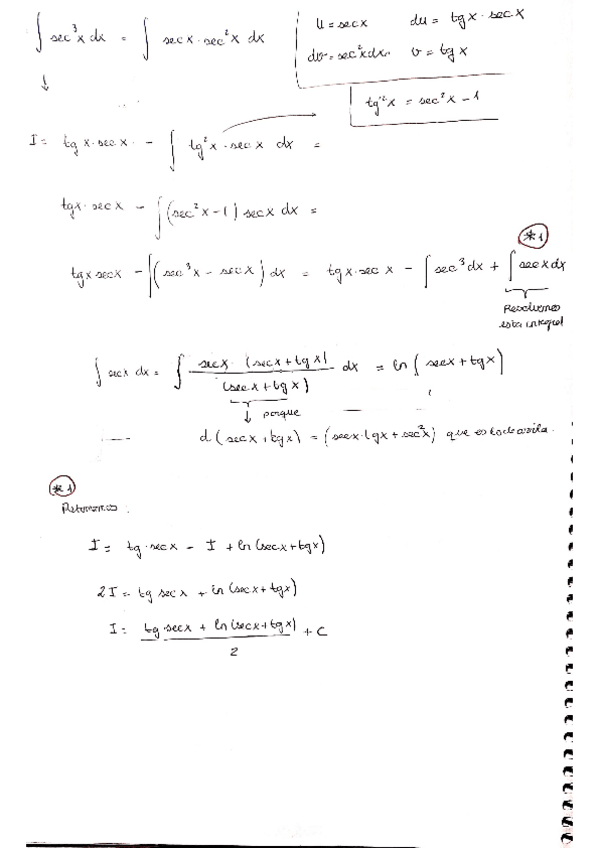 ∫ sec³x dx = ∫ secx · sec²x dx
u = secx   du = tgx · secx
dv = sec²x dx   v = tgx
tg²x = sec²x − 1
I = tgx · secx − ∫ tg²x · secx dx =
tgx · secx − ∫ (sec²x − 1) secx dx =
*1
tgx secx − ∫ (sec³x − secx) dx = tgx · secx − ∫ sec³ dx + ∫ secx dx
Resolvemos
esta integral
∫ secx dx = ∫ secx · (secx + tgx) / (secx + tgx) dx = ln (secx + tgx)
↓ porque
d (secx + tgx) = (secx · tgx + sec²x) que es
*1
Retomamos:
I = tg · secx − I + ln (secx + tgx)
2I = tg secx + ln (secx + tgx)
I = tg · secx + ln (secx + tgx) / 2 + C